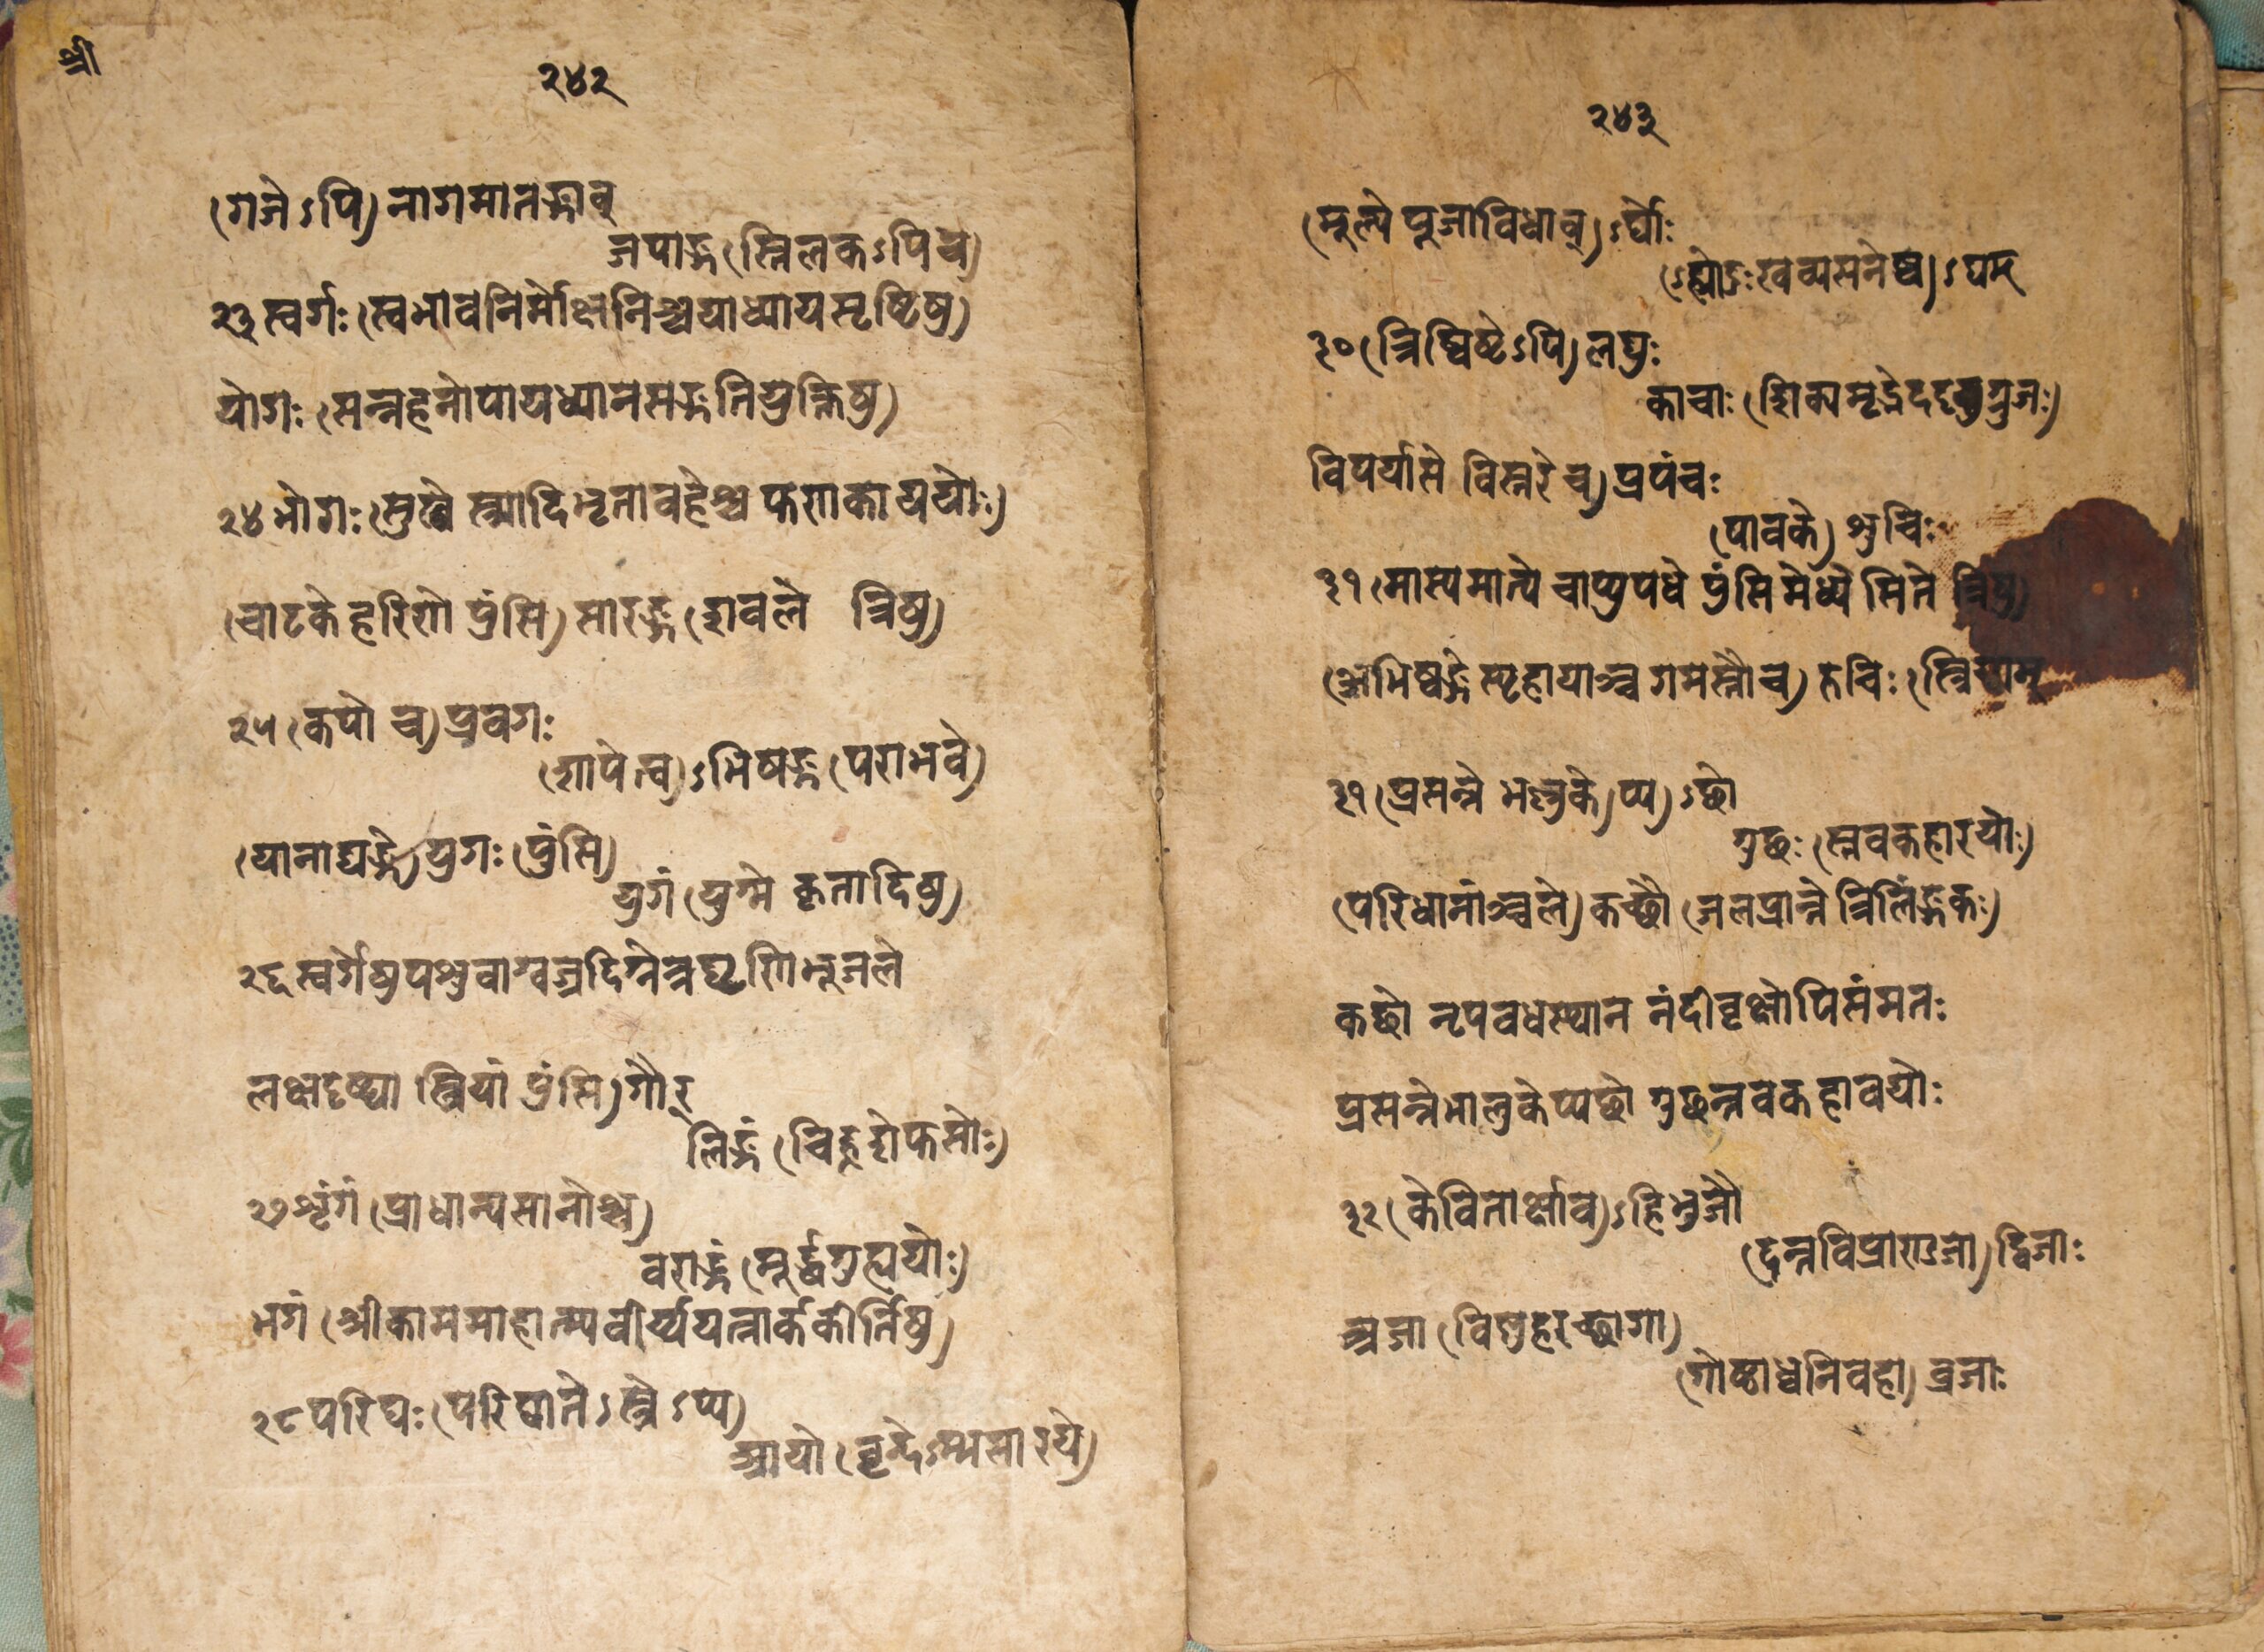 श्री
२४२
(गजेऽपि) नागमातङ्गाव्
ऽपाङ्ग (स्तिलकऽपि च)
२३ स्वर्गः (स्वभावनिर्मोक्षनिश्चयाध्यायसृष्टिषु)
योगः (सन्नहनोपायध्यानसङ्गतियुक्तिषु)
२४ भोगः (सुखे स्त्र्यादिभृतावहेश्च फणाकाययोः)
(चाटके हरिणे पुंसि) सारङ्ग (शवले त्रिषु)
२५ (कपौ च) प्लवगः
(शापे त्व)ऽभिषङ्ग (पराभवे)
(यानाद्यङ्गे) युगः (पुंसि)
युगं (युग्मे कृतादिषु)
२६ स्वर्गेषुपशुवाग्वज्रदिग्नेत्रघृणिभूजले
लक्षदृष्ट्या स्त्रियां पुंसि) गौर्
लिङ्गं (चिह्नशेफसोः)
२७ शृंगं (प्राधान्यसान्वोश्च)
वराङ्गं (मूर्द्धगुह्ययोः)
भगं (श्रीकाममाहात्म्यवीर्य्ययत्नार्ककीर्तिषु)
२८ परिघः (परिघातेऽस्त्रेऽप्य)
ओघो (वृन्देऽम्भसा रये)
२४३
(मूल्ये पूजाविधाव्)ऽर्घो
ऽहोदुःखव्यसनेष्व)ऽघम्
३० (त्रिष्विष्टेऽपि) लघुः
काचाः (शिक्यमृद्भेददृग्रुजः)
विपर्यासे विस्तरे च) प्रपंचः
(पावके) शुचिः
३१ (मास्यमात्ये चाप्युपधे पुंसि मेध्ये सिते त्रिषु)
(अभिष्वङ्गे स्पृहायाञ्च गभस्तौ च) रुचिः (स्त्रियाम्
३१ (प्रसन्ने भल्लुके)प्य)ऽछो
गुछः (स्तवकहारयोः)
(परिधानांञ्चले) कच्छौ (जलप्रान्ते त्रिलिंङ्गकः)
कछो नृपवधस्थान नंदीवृक्षोपिसंमतः
प्रसन्नेभालुकेप्यछो गुछस्तवकहावयोः
३२ (केकितार्क्षाव)ऽहिभुजौ
(दन्तविप्राण्डजा) द्विजाः
अजा (विष्णुहरच्छागा)
(गोष्ठाध्वनिवहा) व्रजाः